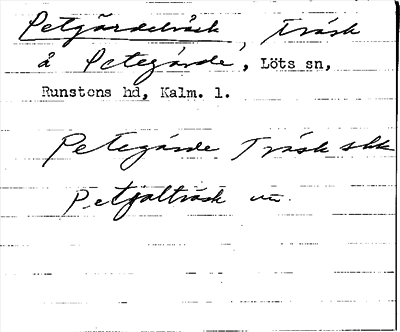 Petgärdeträsk, Träsk
å Petegärde, Löts sn,
Runstens hd, Kalm. l.
Petegärde Träsk skk
Petgälträsk